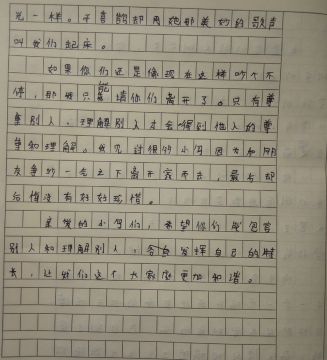 光一样。百喜鹊却用她那美妙的歌声
叫我们起床。
如果你们还是像现在这样吵个不
停，那就只能请你们离开了。只有尊
重别人、理解别人才会得到他人的尊
重和理解。我见过很多小鸟因为和朋
友争吵一气之下离开家而去，最后却
后悔没有好好珍惜。
亲爱的小鸟们，希望你们能包容
别人和理解别人，各自发挥自己的特
长，让我们这个大家庭更加和谐。